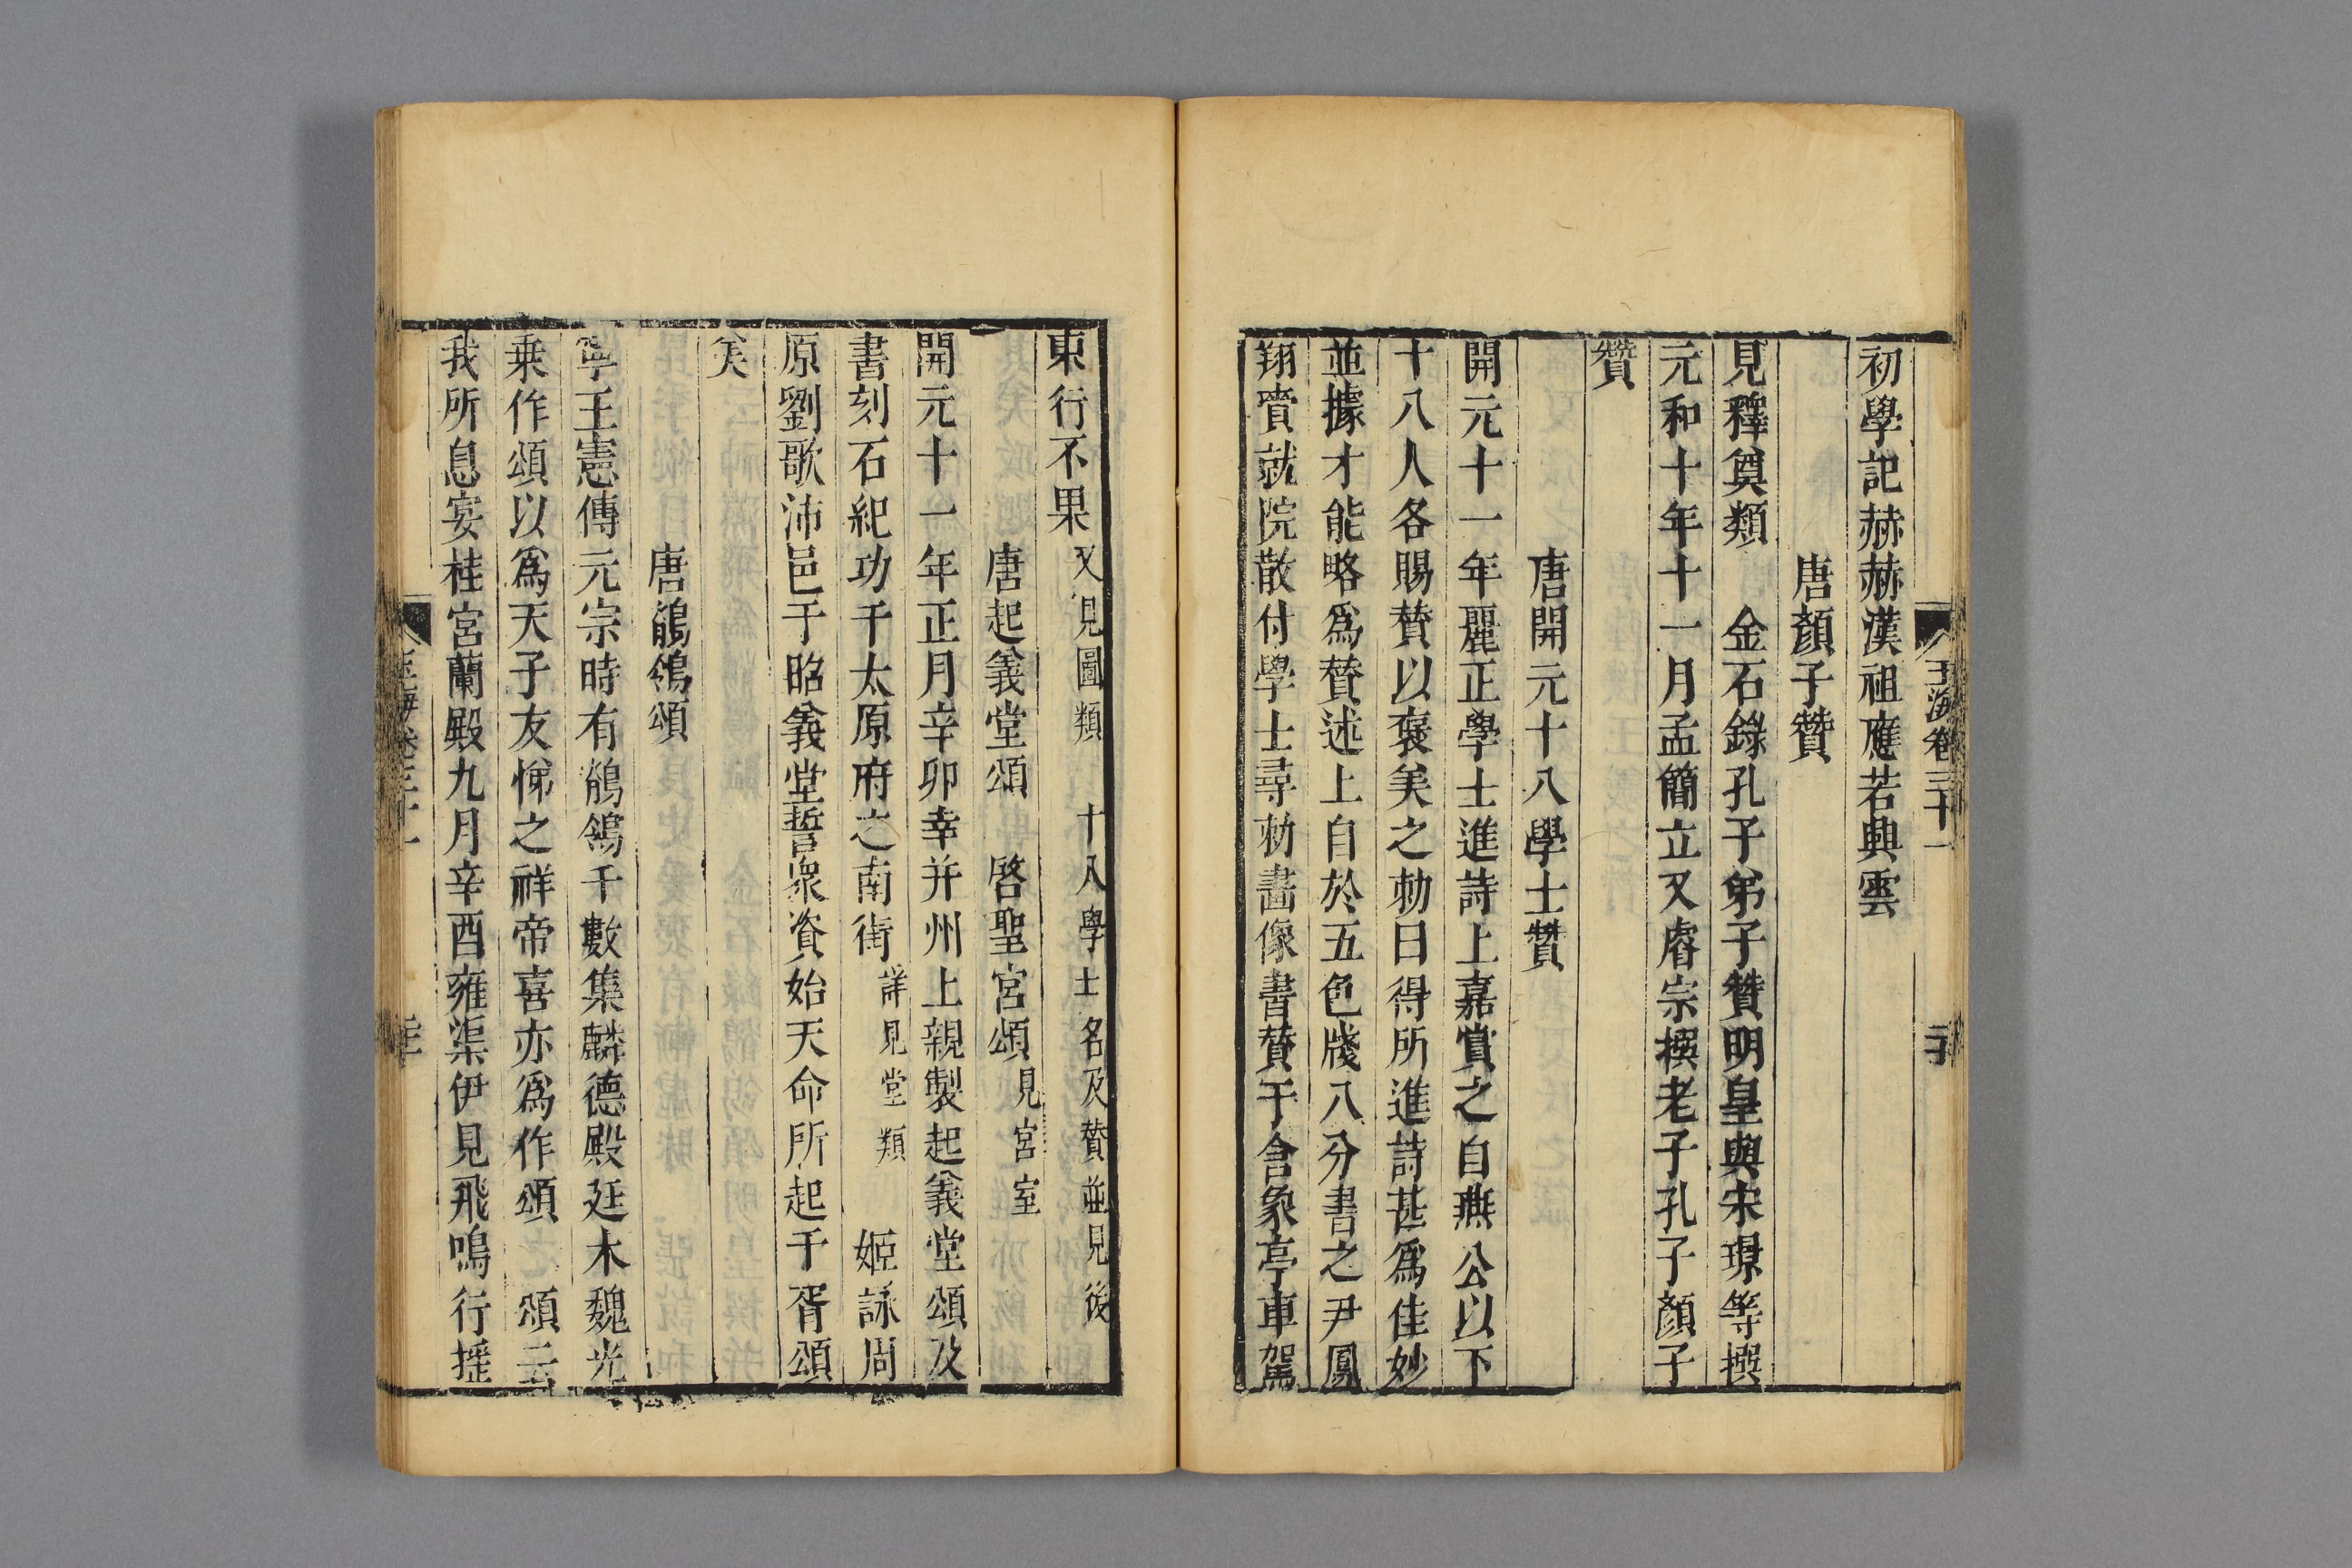 玉海卷三十一
初學記赫赫漢祖應若興雲
唐顏子贊
見釋奠類　金石錄孔子弟子贊明皇與宋璟等撰
元和十年十一月孟簡立又睿宗撰老子孔子顏子
贊
唐開元十八學士贊
開元十一年麗正學士進詩上嘉賞之自燕公以下
十八人各賜贊以褒美之勑曰得所進詩甚爲佳妙
並據才能略爲贊述上自於五色牋八分書之尹鳳
翔賫就院散付學士尋勑畵像書贊于含象亭車駕
東行不果又見圖類　十八學士名及贊並見後
唐起義堂頌　啓聖宮頌見宮室
開元十一年正月辛卯幸并州上親製起義堂頌及
書刻石紀功于太原府之南街詳見堂類　姬詠周
原劉歌沛邑于昭義堂誓衆資始天命所起于胥頌
矣
唐鶺鴒頌
寧王憲傳元宗時有鶺鴒千數集麟德殿廷木魏光
乗作頌以爲天子友悌之祥帝喜亦爲作頌　頌云
我所息宴桂宮蘭殿九月辛酉雍渠伊見飛鳴行揺
玉海卷三十一